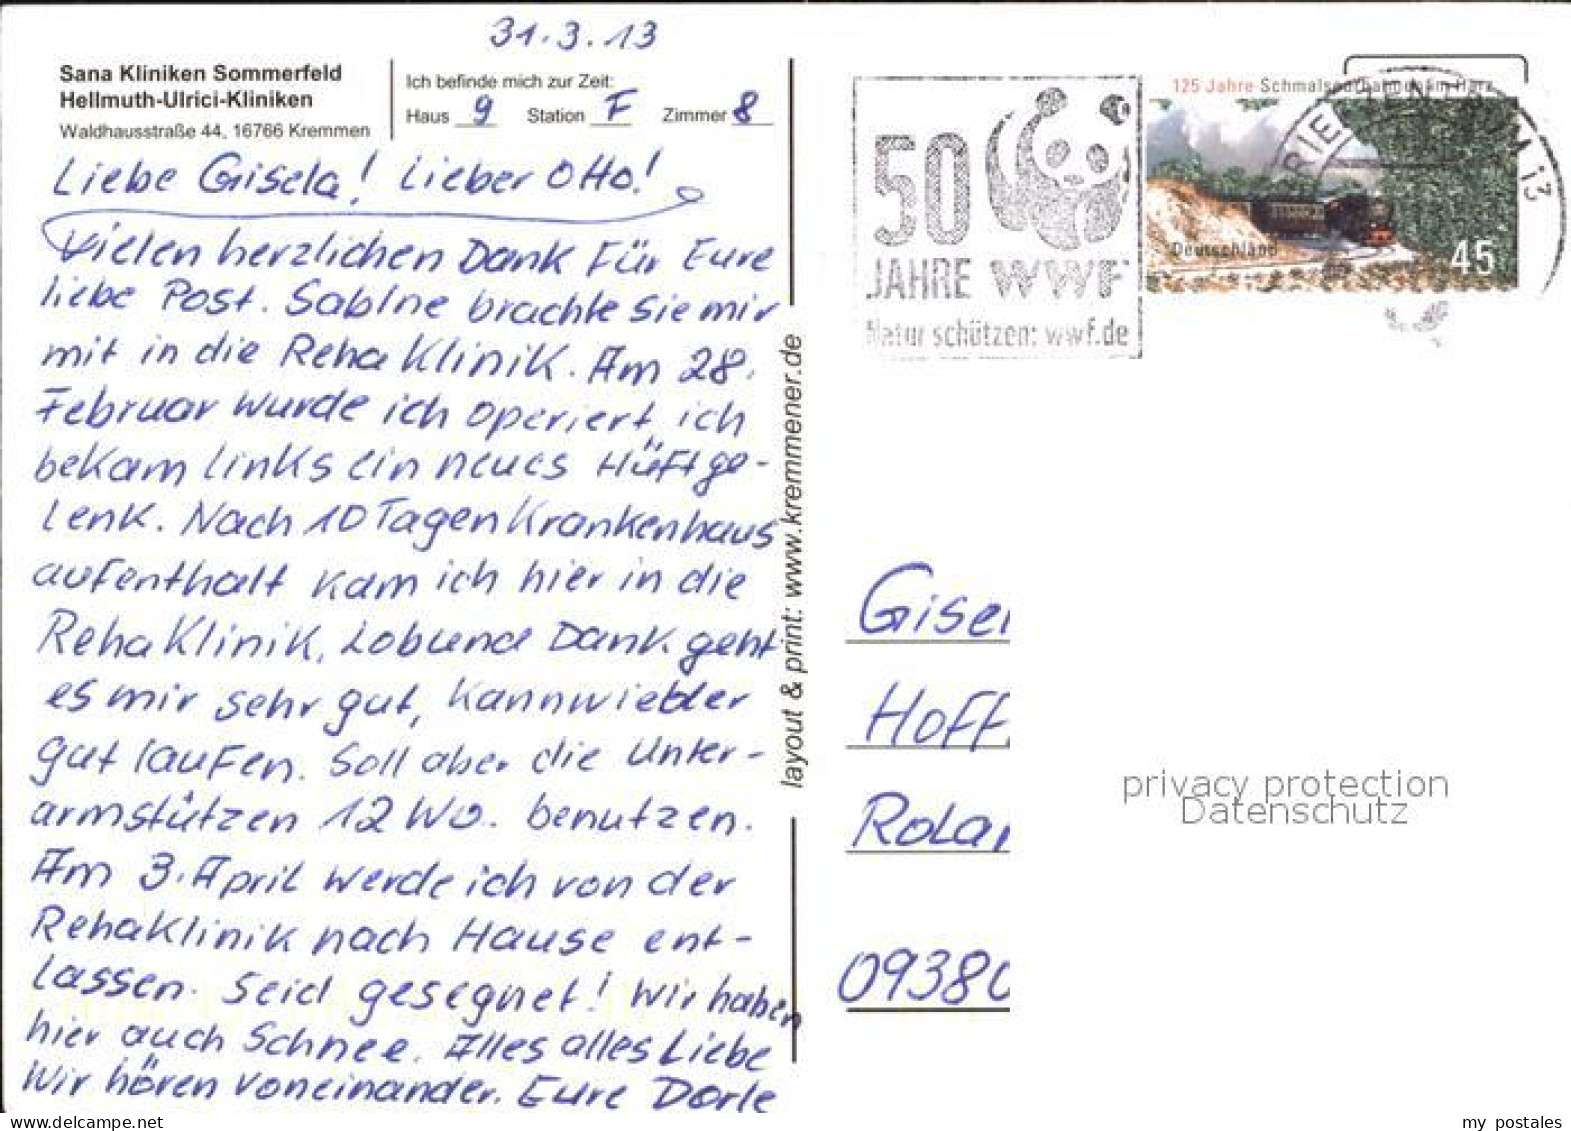 31.3.13
Sana Kliniken Sommerfeld
Hellmuth-Ulrici-Kliniken
Waldhausstraße 44, 16766 Kremmen
Ich befinde mich zur Zeit:
Haus 9 Station F Zimmer 8
Liebe Gisela! Lieber Otto!
Vielen herzlichen Dank für Eure
liebe Post. Sabine brachte sie mir
mit in die Reha Klinik. Am 28.
Februar wurde ich operiert, ich
bekam links ein neues Hüftge-
lenk. Nach 10 Tagen Krankenhaus
aufenthalt kam ich hier in die
Reha Klinik. Lob und Dank geht
es mir sehr gut, kann wieder
gut laufen. Soll aber die Unter-
armstützen 12 Wo. benutzen.
Am 3. April werde ich von der
Rehaklinik nach Hause ent-
lassen. Seid gesegnet! Wir haben
hier auch Schnee. Alles alles Liebe
Wir hören voneinander. Eure Dorle
layout & print: www.kremmener.de
50
JAHRE WWF
Natur schützen: wwf.de
125 Jahre Schmalspurbahnen im Harz
Deutschland
45
13
Gisel
Hoff
Rola
0938
privacy protection
Datenschutz
my postales
www.delcampe.net